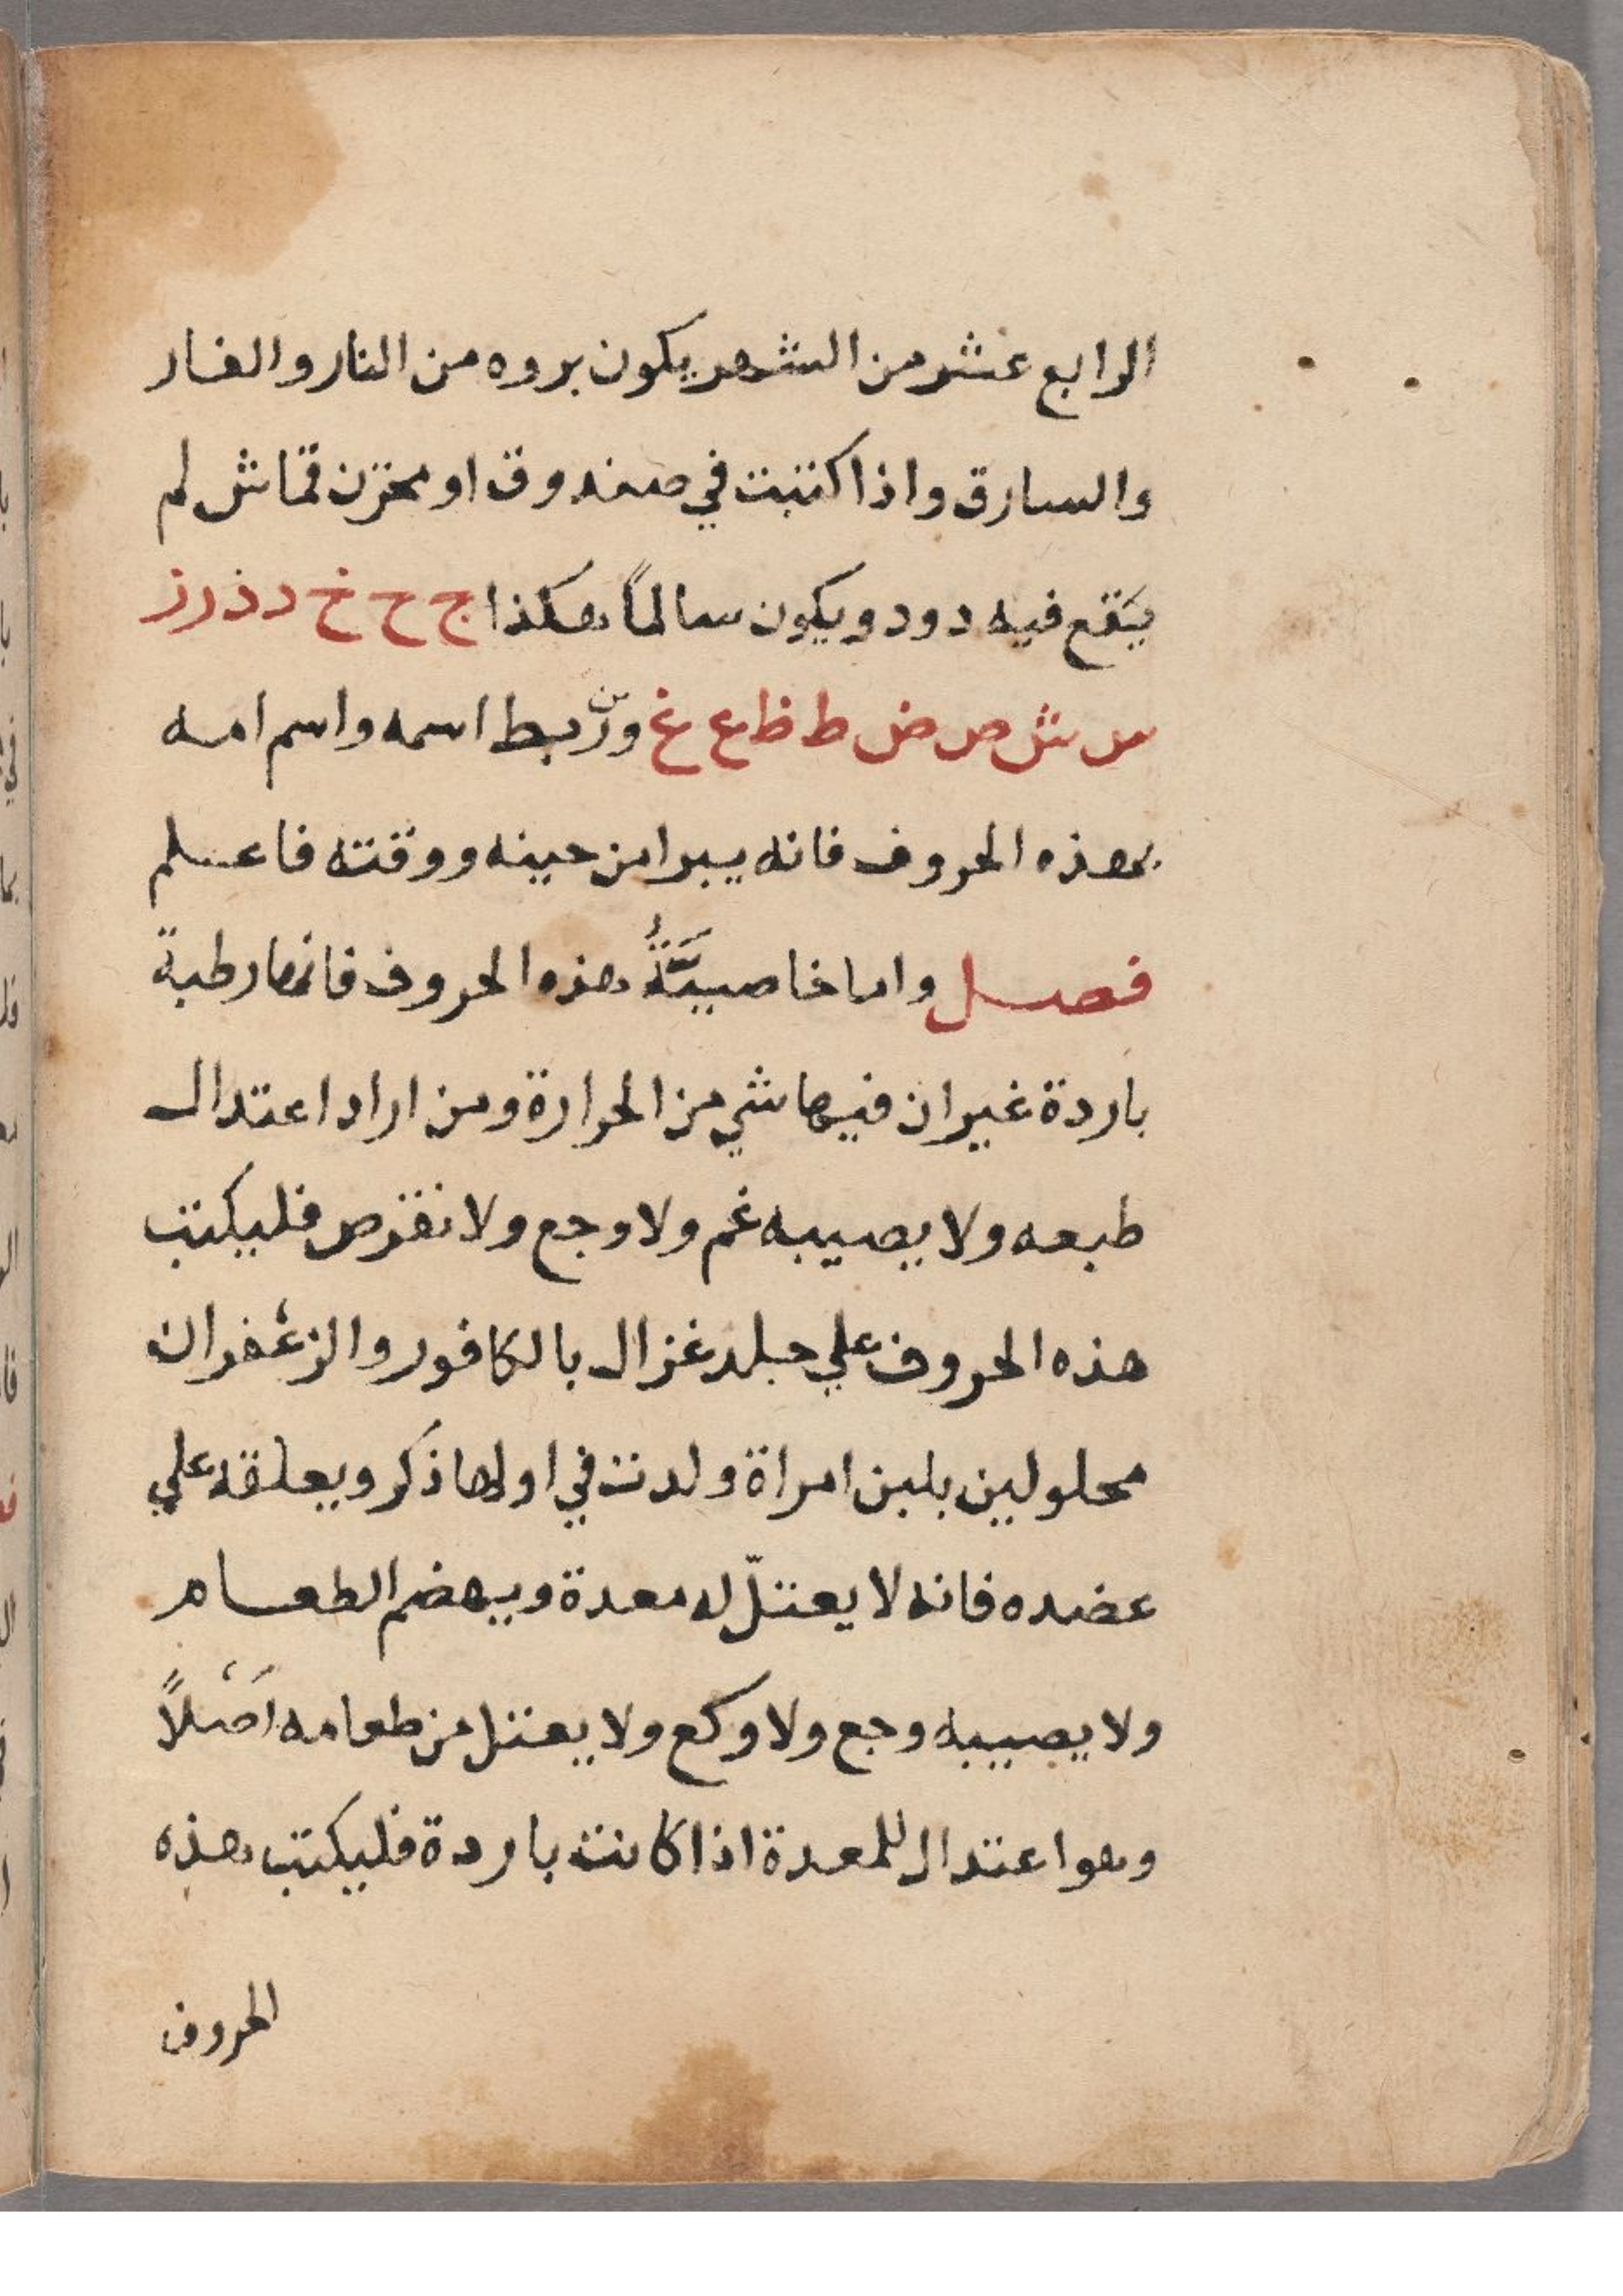 الرابع عشر من الشهر يكون بروه من النار والفار
والسارق واذا كتبت في صندوق او مخزن قماش لم
يَقع فيه دود ويكون سالماً هكذا ج ح خ د ذ ر ز
س ش ص ض ط ظ ع غ و بط اسمه واسم امه
بهذه الحروف فانه يبرا من حينه ووقته فاعلم
فصل واما خاصيَّةُ هذه الحروف فانها رطبة
باردة غير ان فيها شي من الحرارة ومن اراد اعتدال
طبعه ولا يصيبه غم ولا وجع ولا نقزص فليكتب
هذه الحروف علي جلد غزال بالكافور والزعْفران
محلولين بلبن امراة ولدت في اولها ذكر ويعلقه علي
عضده فانه لا يعتلّ له معدة ويهضم الطعام
ولا يصيبه وجع ولا وكع ولا يعتل من طعامه اَصْلاً
وهو اعتدال للمعدة اذا كانت باردة فليكتب هذه
الحروف